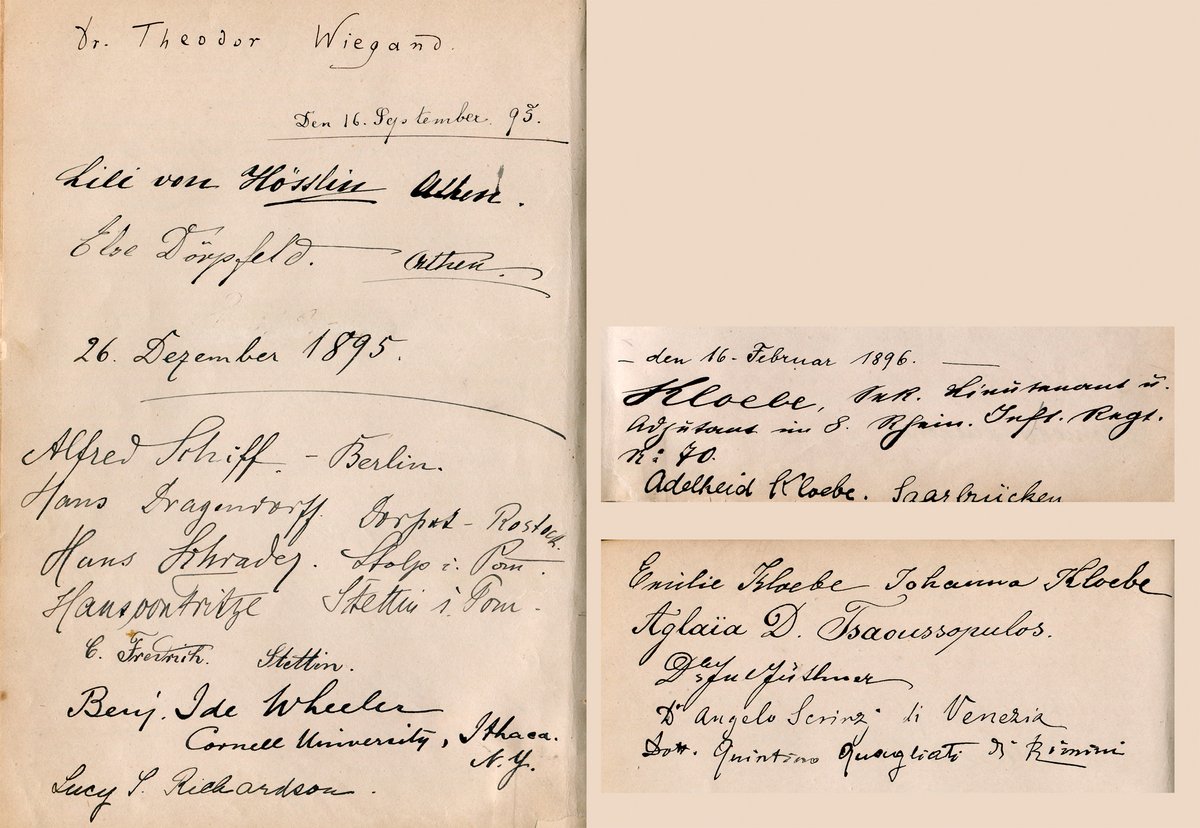 Dr. Theodor Wiegand.
Den 16. September 95.
Lili von Hösslin Athen.
Else Dörpfeld. Athen.
26. Dezember 1895.
Alfred Schiff. - Berlin.
Hans Dragendorff Dorpat - Rostock.
Hans Schrader. Stolp i. Pom.
Hans von Fritze Stettin i Pom.
C. Fredrich. Stettin.
Benj. Ide Wheeler
Cornell University, Ithaca.
N.Y.
Lucy S. Richardson.
– den 16. Februar 1896. –
Kloebe, Sek. Lieutenant u.
Adjutant im 8. Rhein. Inft. Regt.
N: 70.
Adelheid Kloebe. Saarbrücken
Emilie Kloebe Johanna Kloebe
Aglaïa D. Tsaoussopulos.
Jüthner
Dr Angelo Scrinzi di Venezia
Dott. Quintino Quagliati di Rimini